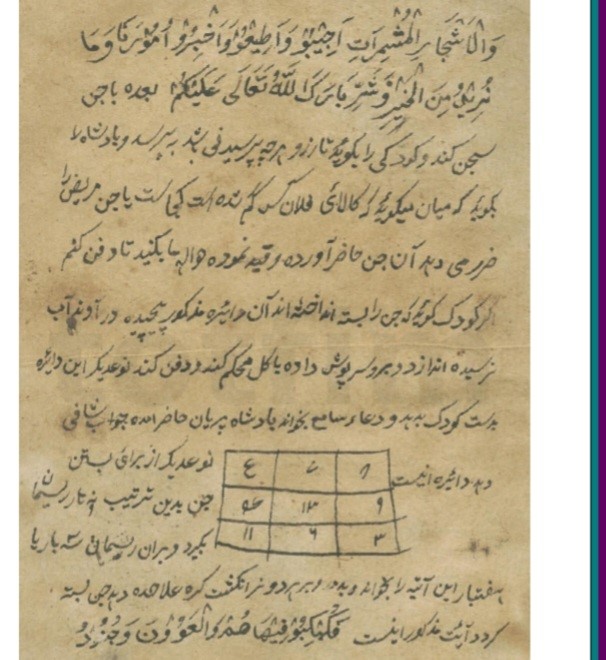 وَالْاَشْجَارِ الْمُثْمِرَاتِ اَجِيْبُوْا وَاَطِيْعُوْا وَاَخْبِرُوْا اُمُوْرَنَا وَمَا
نُرِيْدُ مِنَ الْخَيْرِ وَشَرِّ بَارَكَ اللّٰهُ تَعَالٰى عَلَيْكُمْ بعده باجن
سجن کند و کودکی را بکوید تا هرچه پرسیدنی باشد به پرسد و بادشاه را
بکوید که میان میکوید که کالای فلان کس کم شده است کجا است یا جن مریض را
ضرر می دهد آن جن حاضر آورده مقید نموده حواله ما بکنید تا دفن کنم
اگر کودک کوید که جن را بسته انداخته اند آن دائره مذکور پیچیده در آوند آب
نرسیده اندازد و بر سرپوش داده با کل محکم کند و دفن کند نوعدیکر این دائره
بدست کودک بدهد و دعاء بخواند بادشاه پریان حاضر آمده جواب شافی
دهد دائره اینست
ع
۹ ۱۳
۳ ۶ ۱۱
نوعدیکر از برای بستن
جن بدین ترتیب نه تار ریسمان
بکیرد و بران ریسمان سه بار یا
هفتبار این آیته را بخواند و بدمد و بر سر دو نر انکشت کره علاحده دهد جن بسته
کردد آیت مذکور اینست فَكُبْكِبُوْا فِيْهَا هُمْ وَالْغَاوٗوْنَ وَجُنُوْدُ